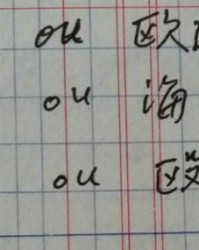 ou 欧
ou
ou 殴